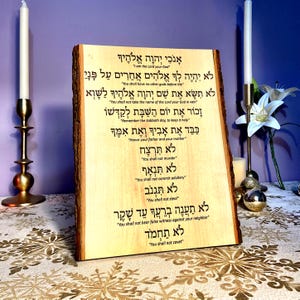 אנכי יהוה אלהיך
"I am the Lord your God"
לא יהיה לך אלהים אחרים על פני
"You shall have no other gods before Me"
לא תשא את שם יהוה אלהיך לשוא
"You shall not take the name of the Lord your God in vain"
זכור את יום השבת לקדשו
"Remember the Sabbath day to keep it holy"
כבד את אביך ואת אמך
"Honor your father and your mother"
לא תרצח
"You shall not murder"
לא תנאף
"You shall not commit adultery"
לא תגנב
"You shall not steal"
לא תענה ברעך עד שקר
"You shall not bear false witness against your neighbor"
לא תחמד
"You shall not covet"